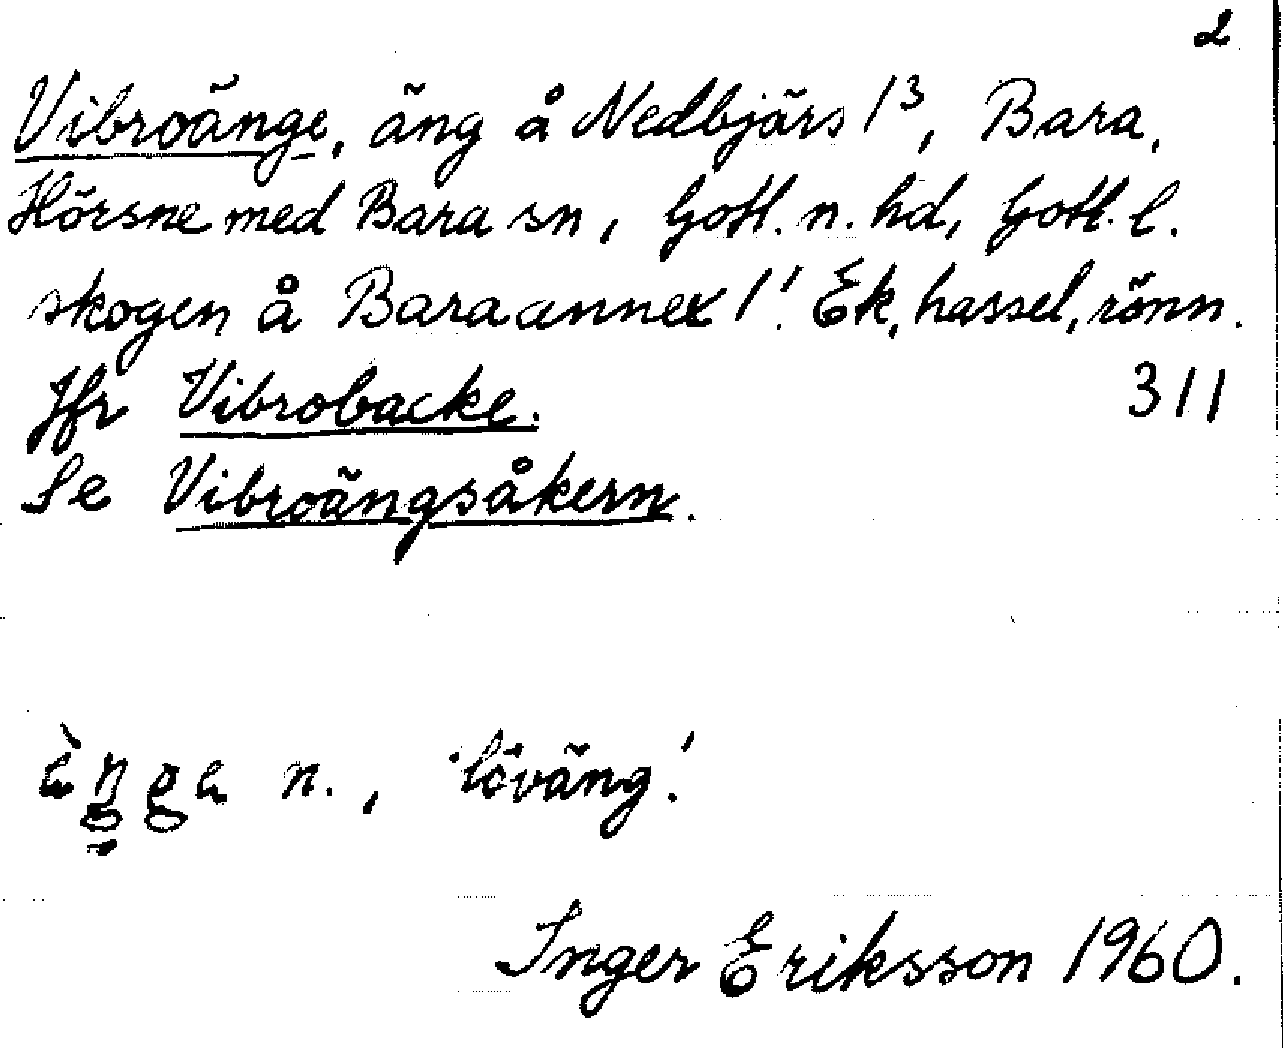 2
Vibroänge, äng å Nedbjärs 1³, Bara,
Hörsne med Bara sn, Gotl. n. hd, Gotl. l.
skogen å Bara annex 1¹. Ek, hassel, rönn.
Jfr Vibrobacke. 311
Se Vibroängsåkern.
n., 'löväng'.
Inger Eriksson 1960.